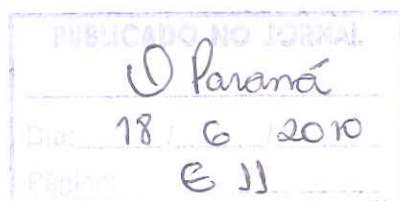 PUBLICADO NO JORNAL
O Paraná
Dia: 18 / 6 / 2010
Página: E 11